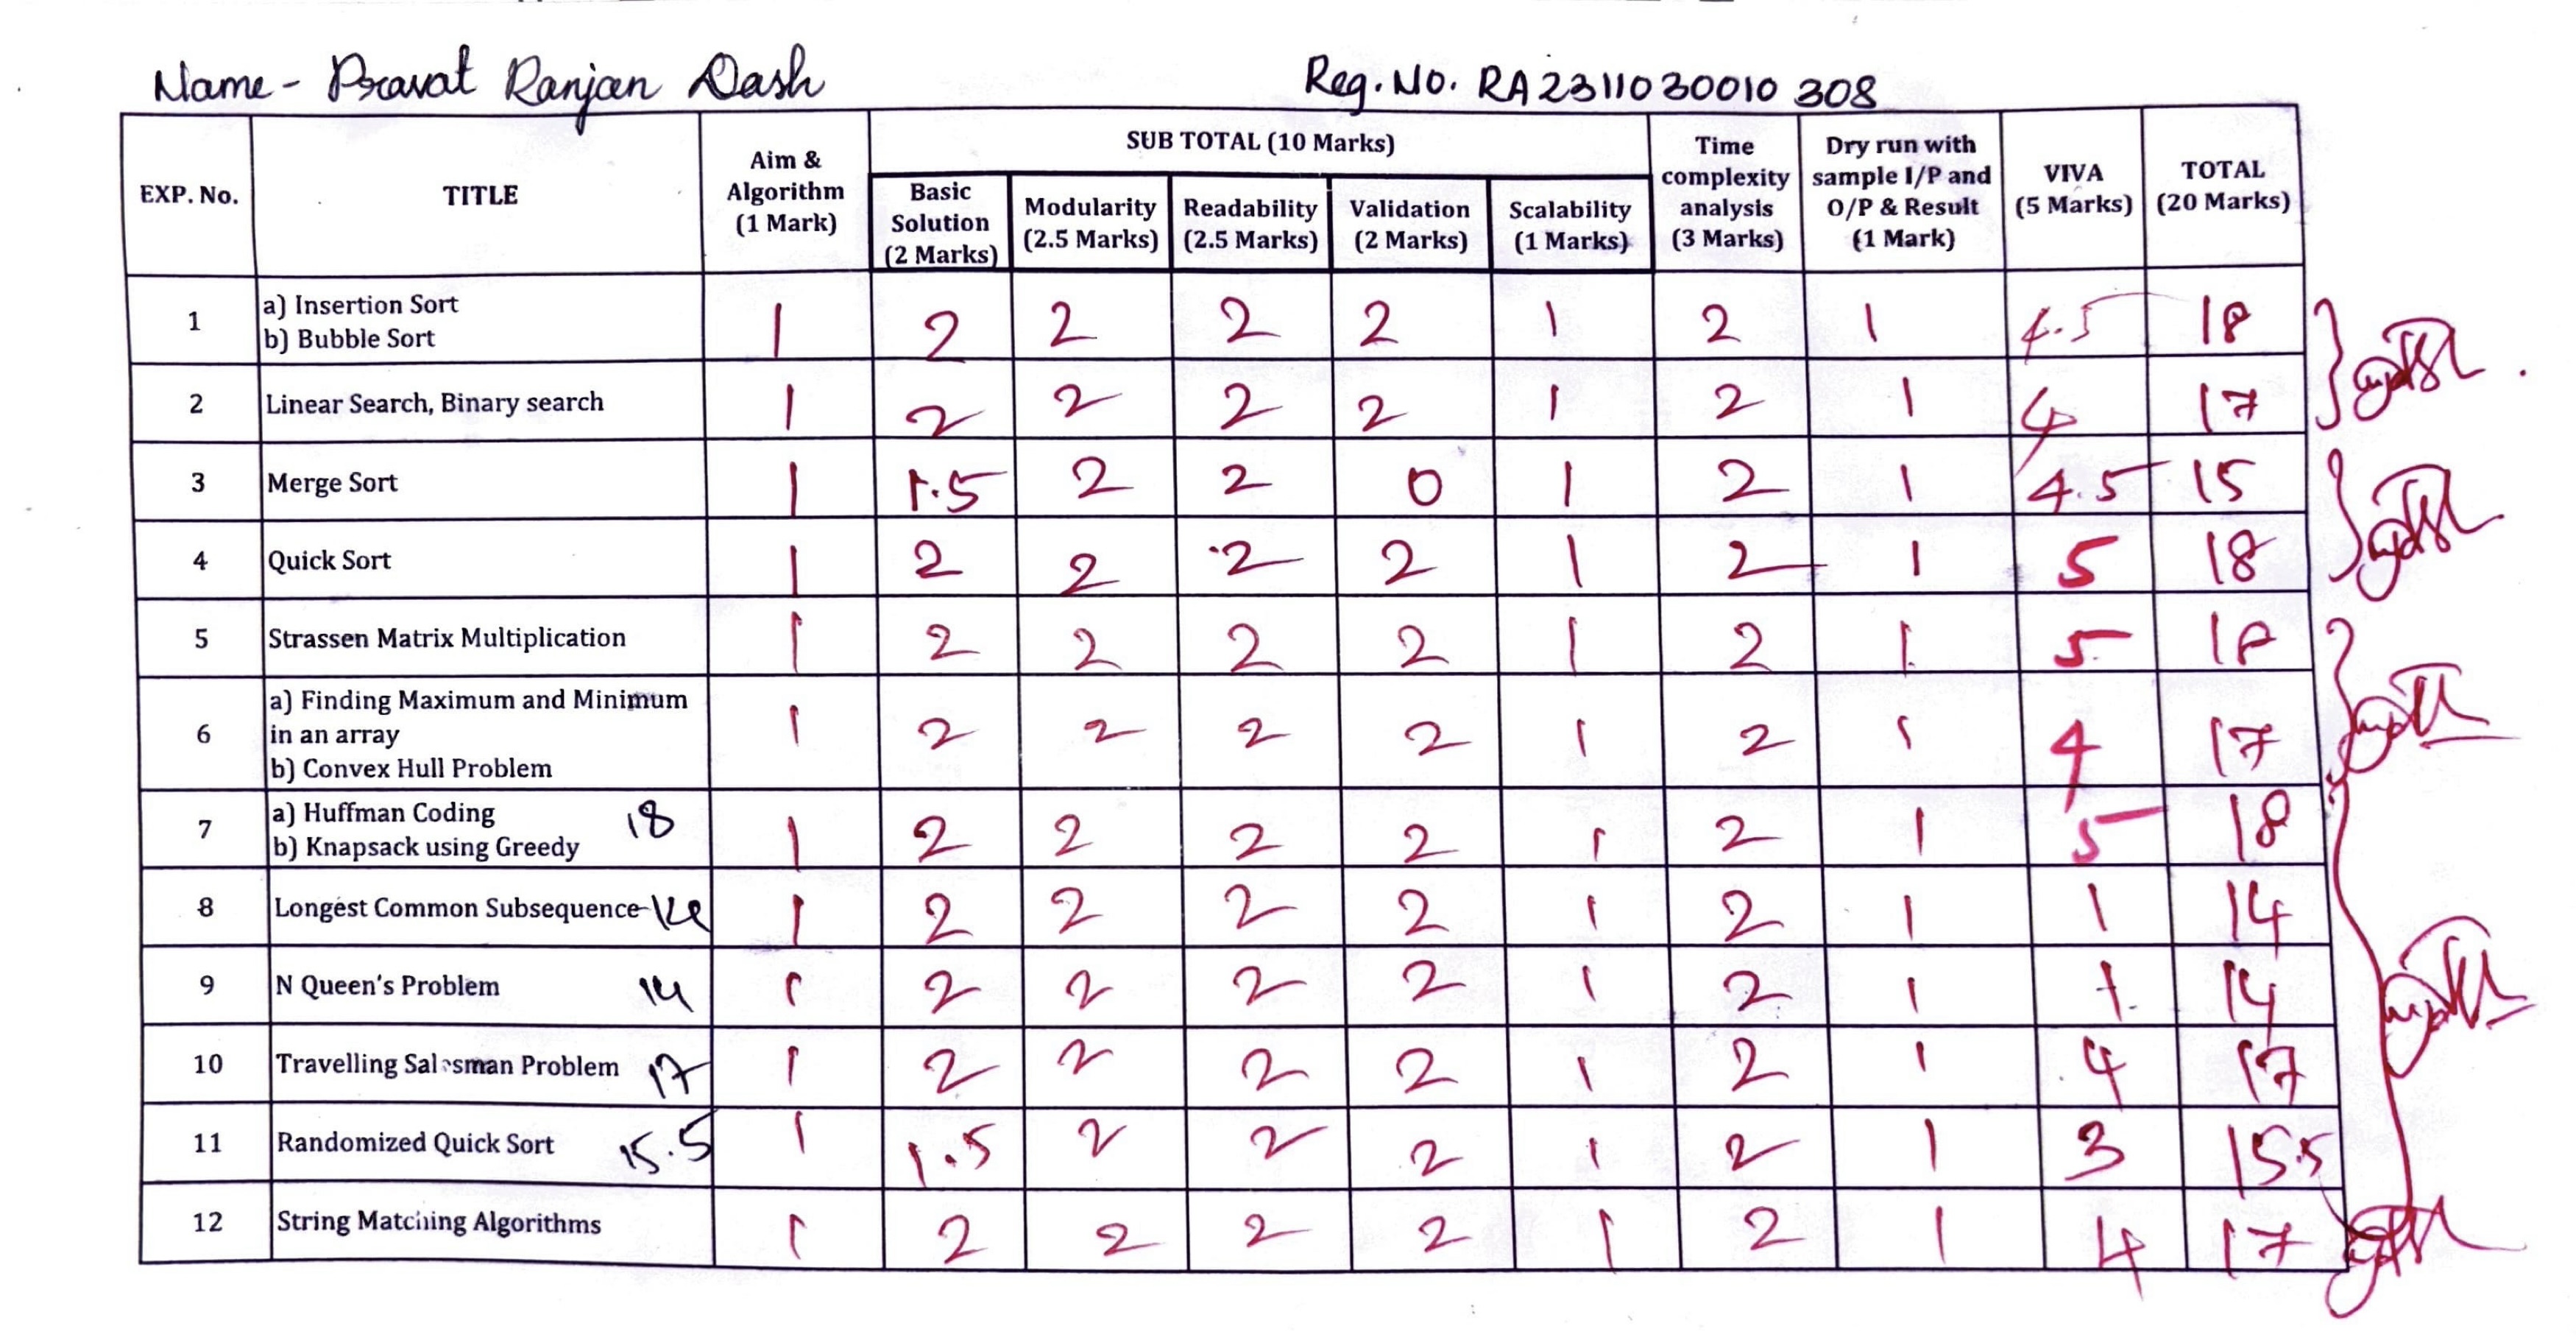 Name - Pravat Ranjan Dash Reg. No. RA2311030010308
EXP. No. TITLE Aim & Algorithm (1 Mark) SUB TOTAL (10 Marks) Time complexity analysis (3 Marks) Dry run with sample I/P and O/P & Result (1 Mark) VIVA (5 Marks) TOTAL (20 Marks)
Basic Solution (2 Marks) Modularity (2.5 Marks) Readability (2.5 Marks) Validation (2 Marks) Scalability (1 Marks)
1 a) Insertion Sort b) Bubble Sort 1 2 2 2 2 1 2 1 4.5 18
2 Linear Search, Binary search 1 2 2 2 2 1 2 1 4 17
3 Merge Sort 1 1.5 2 2 0 1 2 1 4.5 15
4 Quick Sort 1 2 2 2 2 1 2 1 5 18
5 Strassen Matrix Multiplication 1 2 2 2 2 1 2 1 5 18
6 a) Finding Maximum and Minimum in an array b) Convex Hull Problem 1 2 2 2 2 1 2 1 4 17
7 a) Huffman Coding b) Knapsack using Greedy 18 1 2 2 2 2 1 2 1 5 18
8 Longest Common Subsequence 14 1 2 2 2 2 1 2 1 1 14
9 N Queen's Problem 14 1 2 2 2 2 1 2 1 1 14
10 Travelling Salesman Problem 17 1 2 2 2 2 1 2 1 4 17
11 Randomized Quick Sort 15.5 1 1.5 2 2 2 1 2 1 3 15.5
12 String Matching Algorithms 1 2 2 2 2 1 2 1 4 17